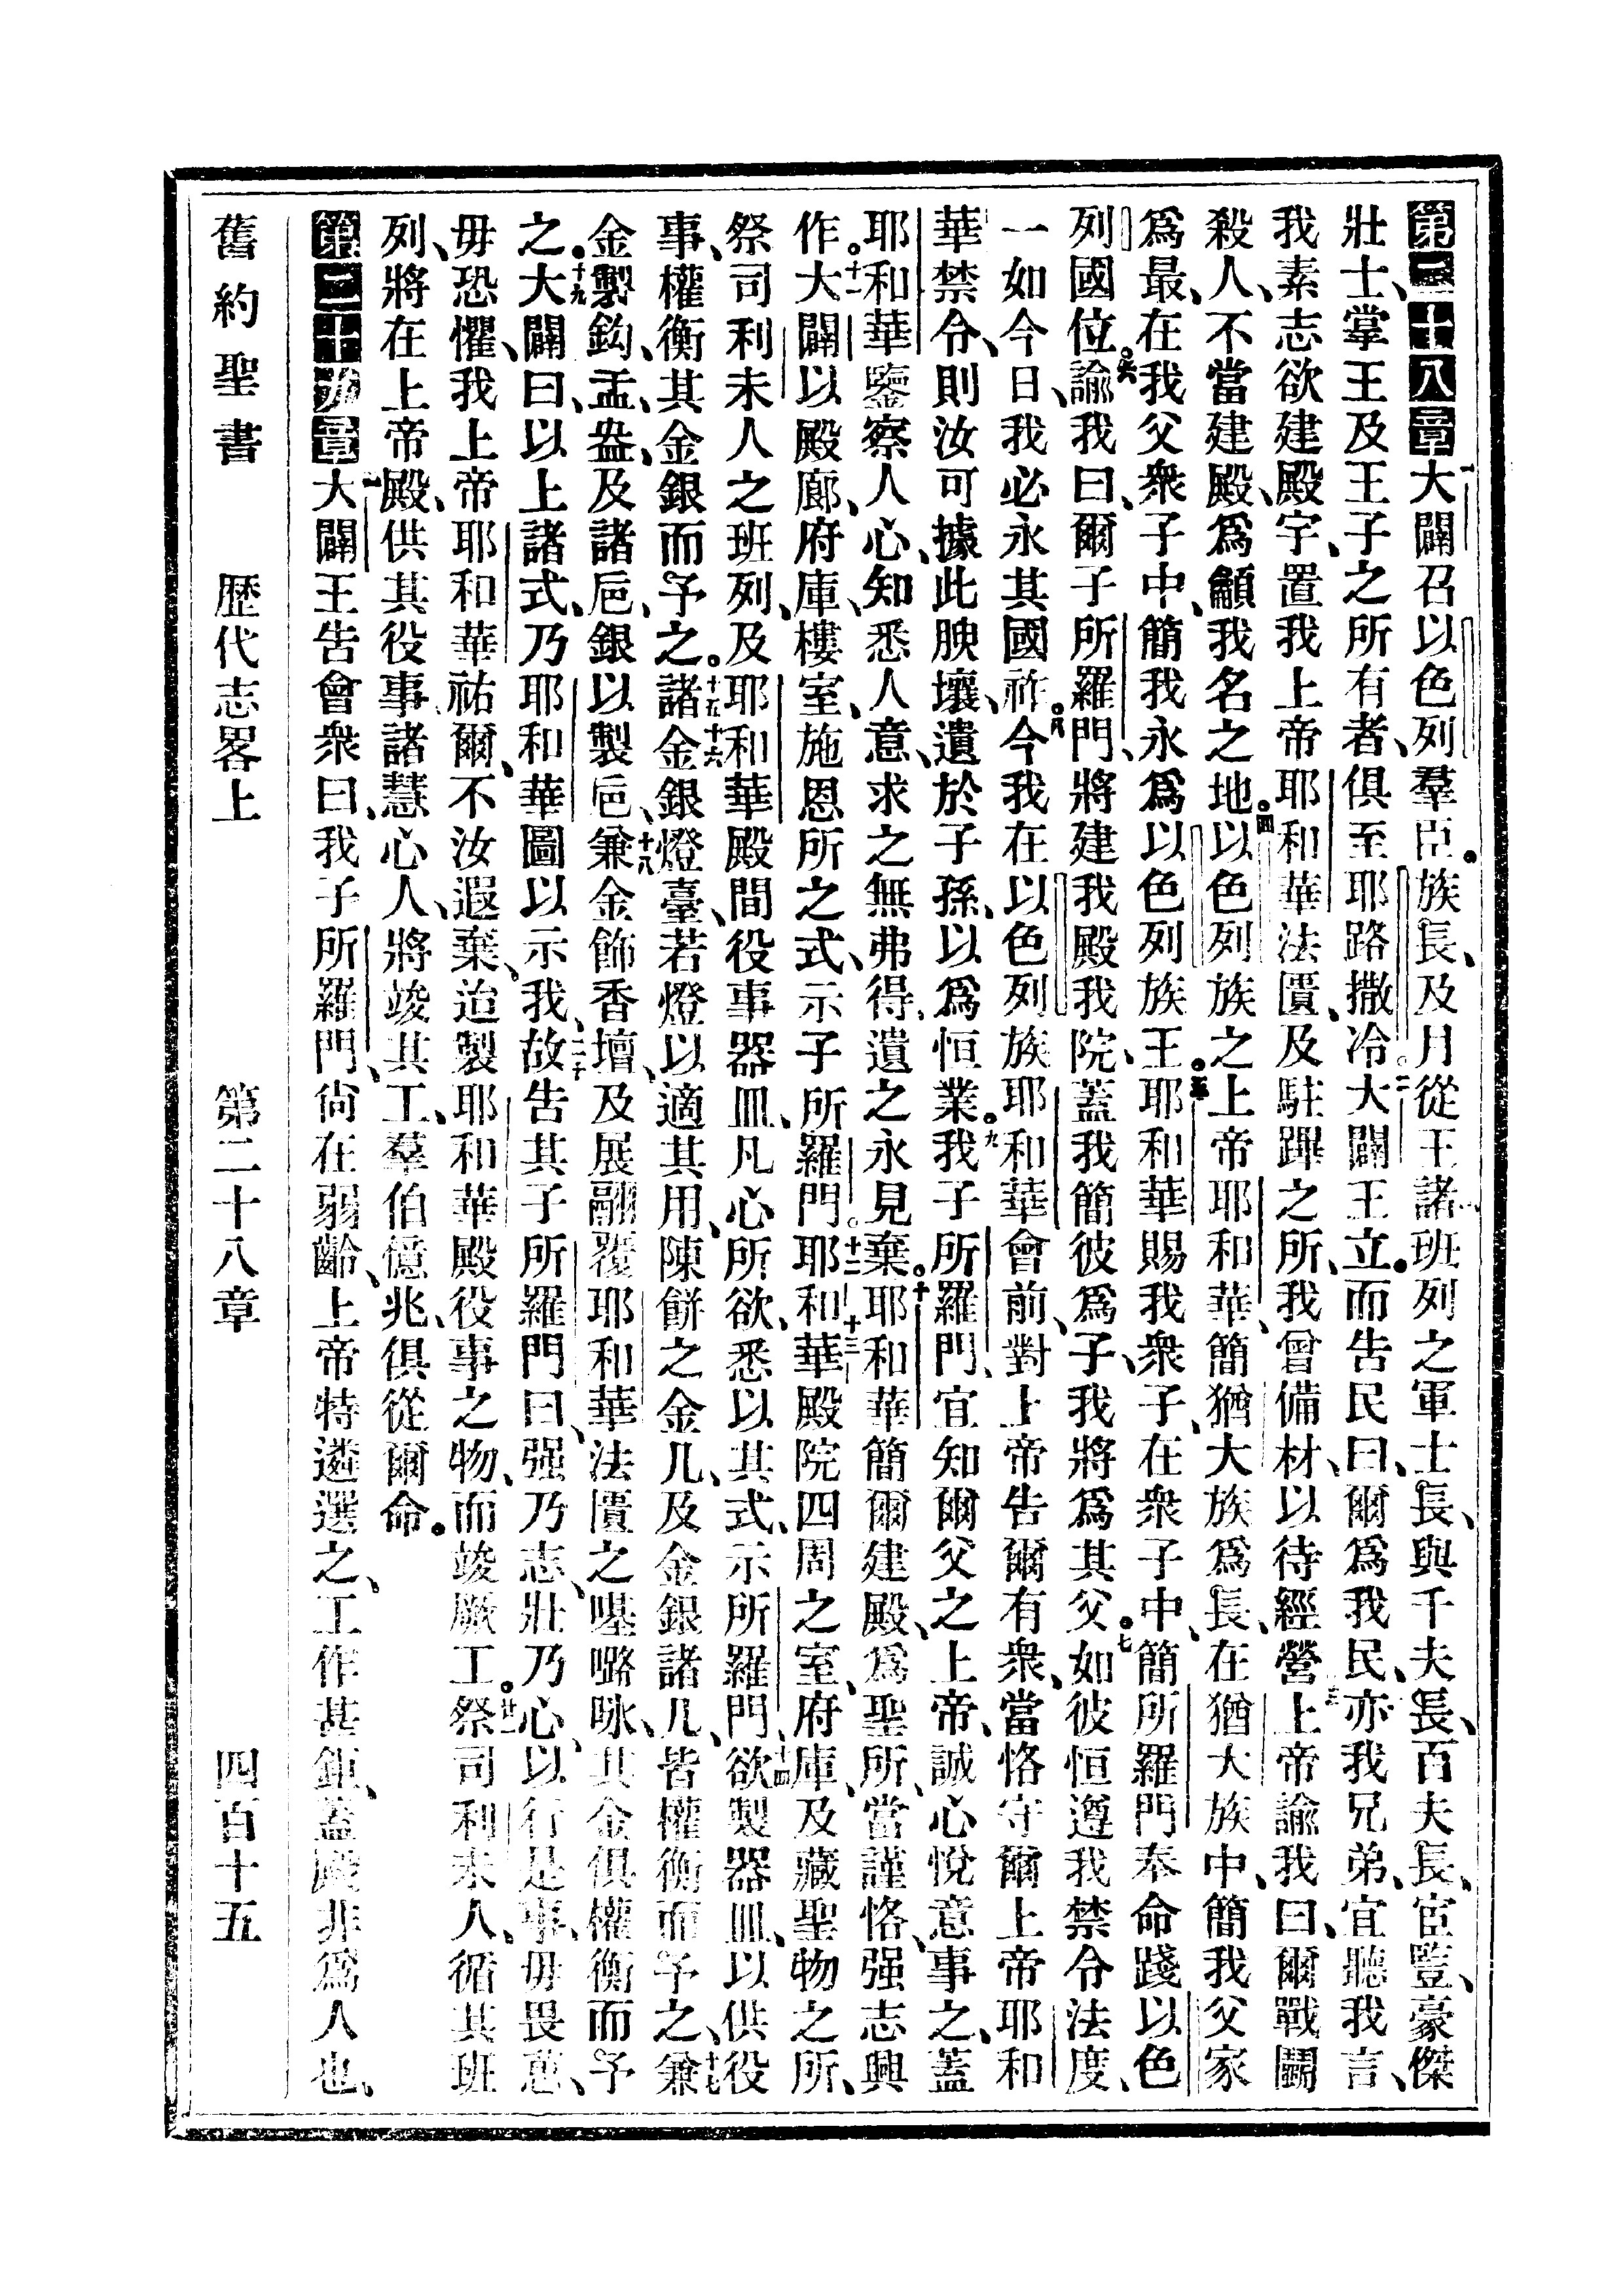 第二十八章一大闢召以色列羣臣。族長、及月從王諸班列之軍士長、與千夫長、百夫長、宦豎、豪傑
壯士、掌王及王子之所有者、俱至耶路撒冷。二大闢王立。而告民曰、爾爲我民、亦我兄弟、宜聽我言、
我素志欲建殿宇、置我上帝耶和華法匱、及駐蹕之所、我曾備材、以待經營、三上帝諭我曰、爾戰鬭
殺人、不當建殿、爲籲我名之地。四以色列族之上帝耶和華、簡猶大族爲長、在猶大族中、簡我父家
爲最、在我父衆子中、簡我永爲以色列族王。五耶和華賜我衆子、在衆子中、簡所羅門奉命踐以色
列國位。六諭我曰、爾子所羅門、將建我殿我院、蓋我簡彼爲子、我將爲其父。七如彼恒遵我禁令法度、
一如今日、我必永其國祚。八今我在以色列族耶和華會前、對上帝告爾有衆、當恪守爾上帝耶和
華禁令、則汝可據此腴壤、遺於子孫、以爲恒業。九我子所羅門、宜知爾父之上帝、誠心悅意事之、蓋
耶和華鑒察人心、知悉人意、求之無弗得、遺之永見棄。十耶和華簡爾建殿、爲聖所、當謹恪、强志興
作。十一大闢以殿廊、府庫、樓室、施恩所之式、示子所羅門。十二耶和十三華殿院四周之室、府庫、及藏聖物之所、
祭司利未人之班列、及耶和華殿間役事器皿、凡心所欲、悉以其式、示所羅門、十四欲製器皿、以供役
事、權衡其金銀而予之。十五諸十六金銀燈臺、若燈以適其用、陳餅之金几、及金銀諸几、皆權衡而予之、十七兼
金製鈎、盂、盎、及諸巵、銀以製巵、十八兼金飾香壇、及展翮覆耶和華法匱之𠼻㘔咏、其金俱權衡而予
之。十九大闢曰、以上諸式、乃耶和華圖以示我、二十故告其子所羅門曰、强乃志、壯乃心、以行是事、毋畏葸、
毋恐懼、我上帝耶和華祐爾、不汝遐棄、迨製耶和華殿役事之物、而竣厥工。廿一祭司利未人、循其班
列、將在上帝殿、供其役事、諸慧心人、將竣其工、羣伯億兆、俱從爾命。
第二十九章一大闢王告會衆曰、我子所羅門、尙在弱齡、上帝特遴選之、工作甚鉅、蓋殿非爲人也、
舊約聖書 歷代志畧上 第二十八章 四百十五